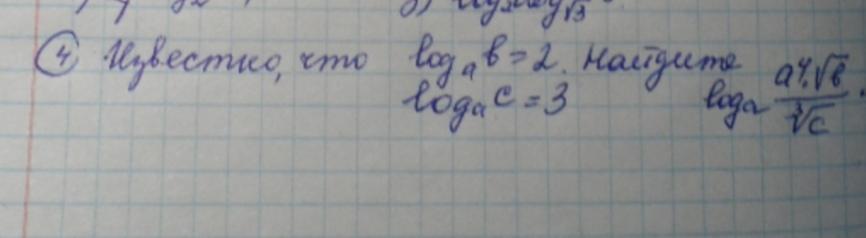 ④ Известно, что log_a b = 2. Найдите
log_a c = 3 log_a (a⁴·√b)/(∛c).